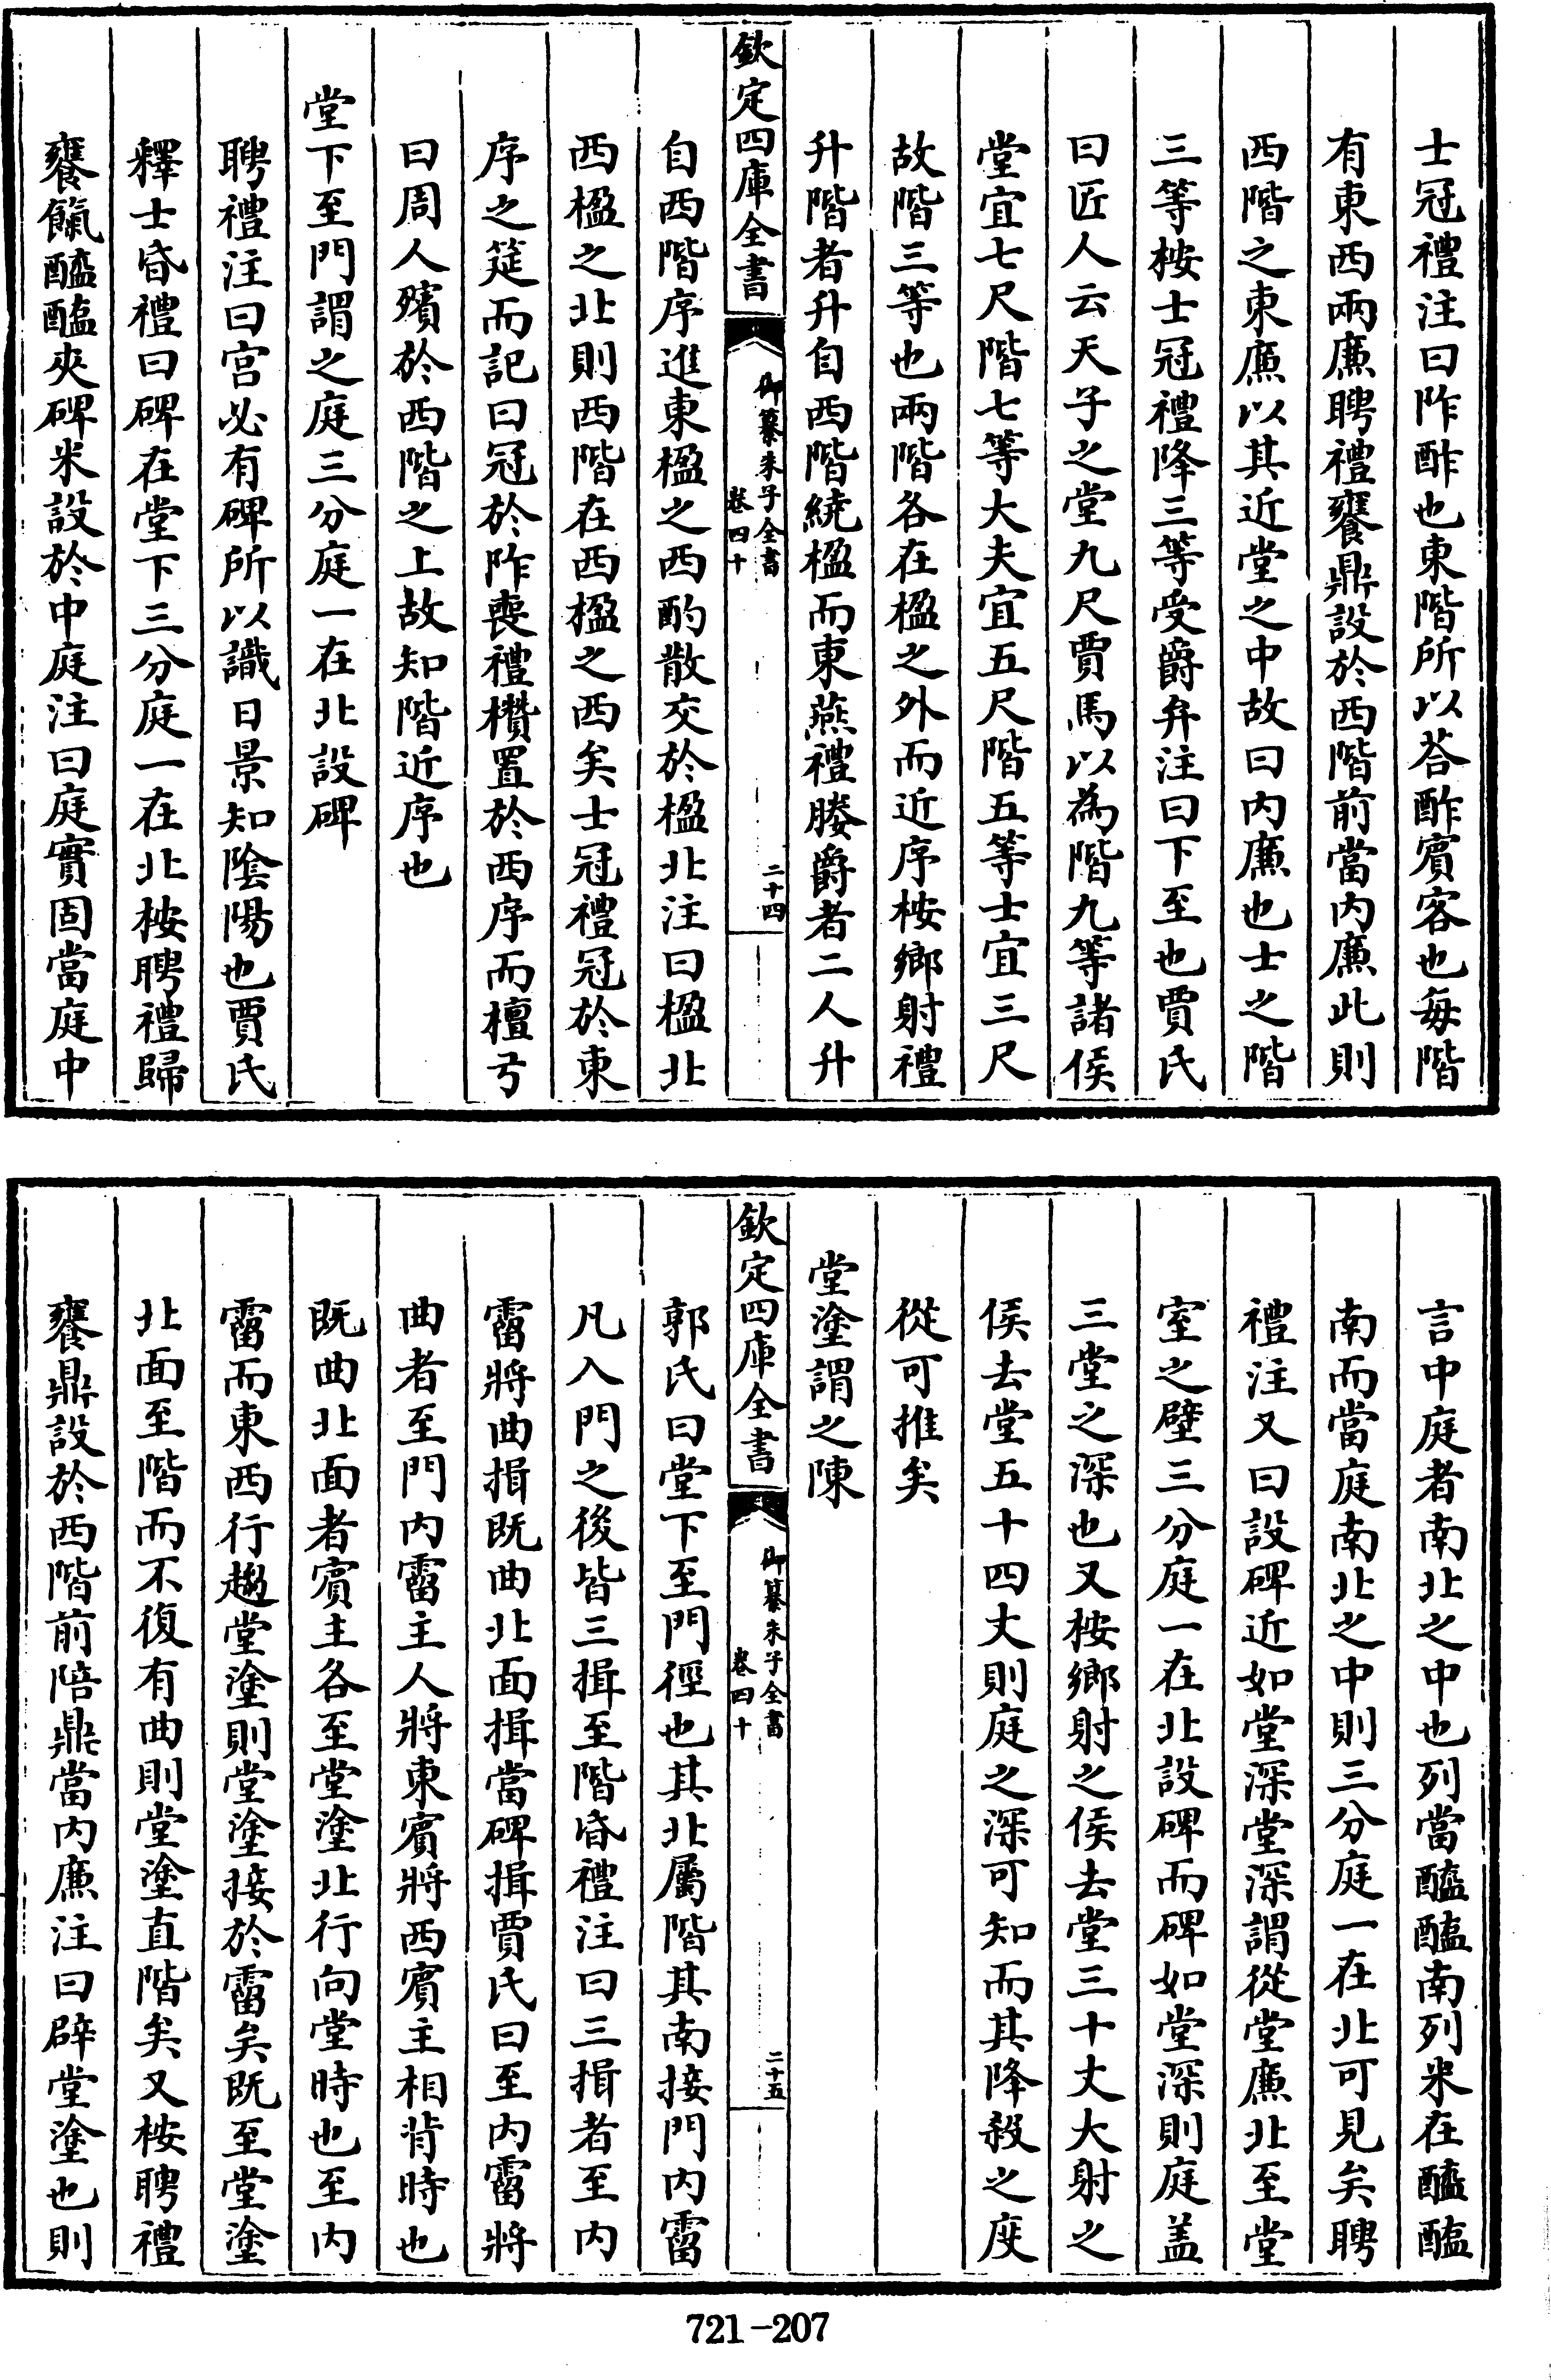 士冠禮注曰阼酢也東階所以荅酢賓客也每階
有東西兩廉聘禮饔鼎設於西階前當内廉此則
西階之東廉以其近堂之中故曰内廉也士之階
三等桉士冠禮降三等受爵弁注曰下至也賈氏
曰匠人云天子之堂九尺賈馬以為階九等諸侯
堂宜七尺階七等大夫宜五尺階五等士宜三尺
故階三等也兩階各在楹之外而近序桉鄉射禮
升階者升自西階繞楹而東燕禮媵爵者二人升
欽定四庫全書
御纂朱子全書
卷四十
二十四
自西階序進東楹之西酌散交於楹北注曰楹北
西楹之北則西階在西楹之西矣士冠禮冠於東
序之筵而記曰冠於阼喪禮欑置於西序而檀弓
曰周人殯於西階之上故知階近序也
堂下至門謂之庭三分庭一在北設碑
聘禮注曰宫必有碑所以識日景知隂陽也賈氏
釋士昏禮曰碑在堂下三分庭一在北桉聘禮歸
饔餼醯醢夾碑米設於中庭注曰庭實固當庭中
言中庭者南北之中也列當醯醢南列米在醯醢
南而當庭南北之中則三分庭一在北可見矣聘
禮注又曰設碑近如堂深堂深謂從堂廉北至堂
室之壁三分庭一在北設碑而碑如堂深則庭盖
三堂之深也又桉鄉射之侯去堂三十丈大射之
侯去堂五十四丈則庭之深可知而其降殺之度
從可推矣
堂塗謂之陳
欽定四庫全書
御纂朱子全書
卷四十
二十五
郭氏曰堂下至門徑也其北屬階其南接門内霤
凡入門之後皆三揖至階昏禮注曰三揖者至内
霤將曲揖既曲北面揖當碑揖賈氏曰至内霤將
曲者至門内霤主人將東賓將西賓主相背時也
既曲北面者賓主各至堂塗北行向堂時也至内
霤而東西行趨堂塗則堂塗接於霤矣既至堂塗
北面至階而不復有曲則堂塗直階矣又桉聘禮
饔鼎設於西階前陪鼎當内廉注曰辟堂塗也則
721-207